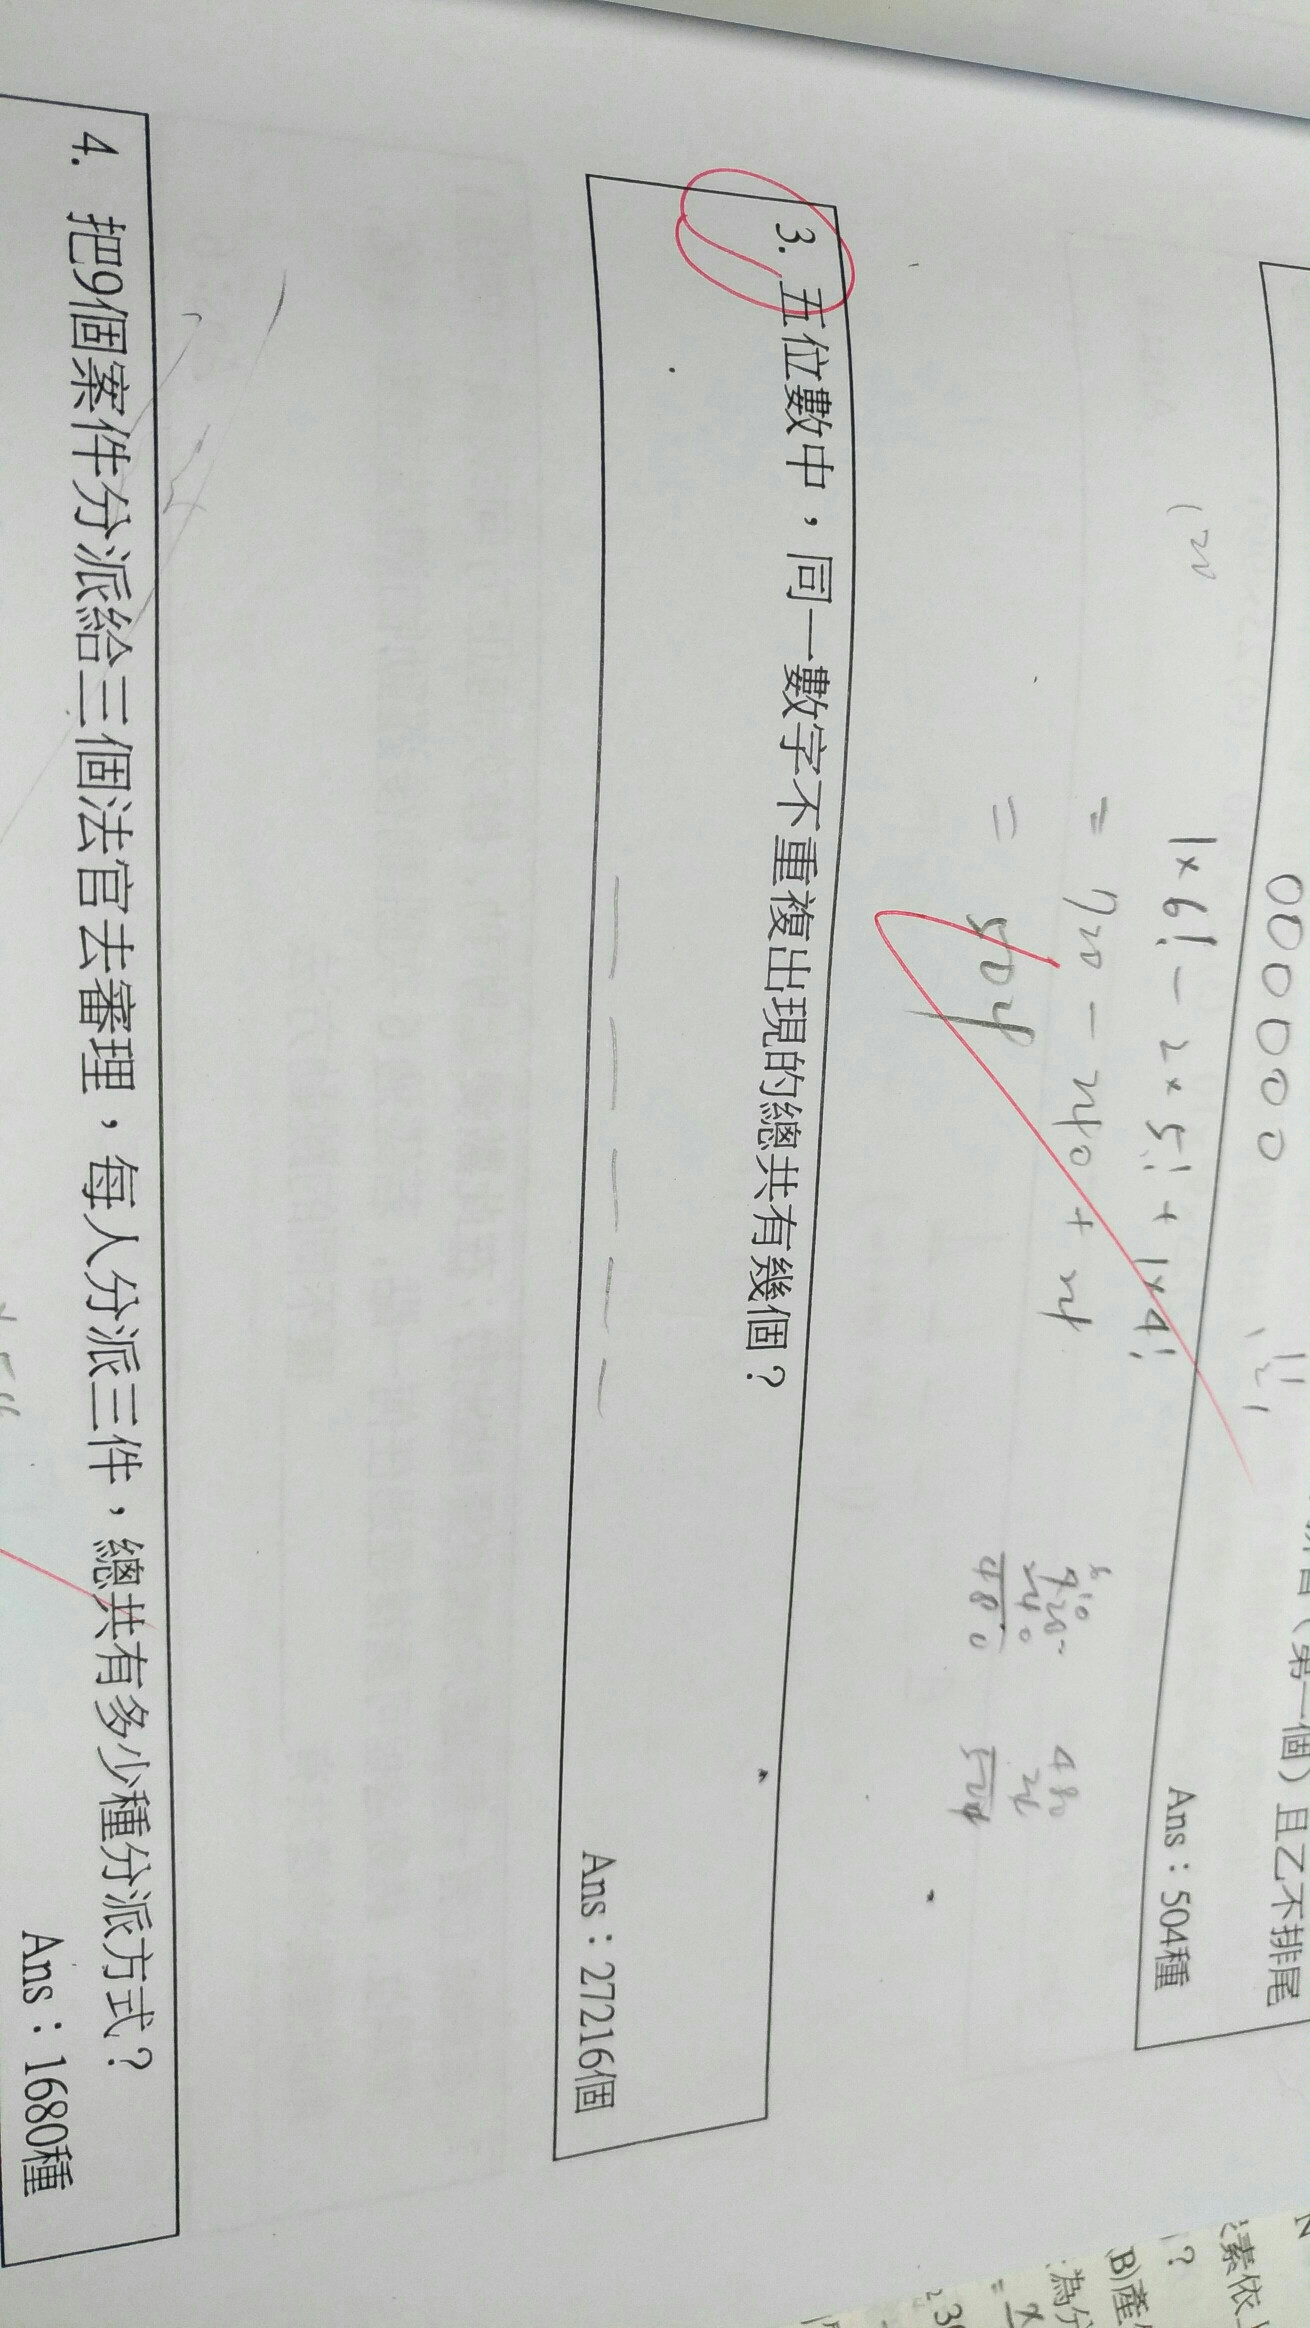 (第一個)且乙不排尾
Ans：504種
000000
1×6!－2×5!＋1×4!
= 720－240＋24
= 504
720-
240
480
480
24
504
120
3. 五位數中，同一數字不重複出現的總共有幾個？
Ans：27216個
4. 把9個案件分派給三個法官去審理，每人分派三件，總共有多少種分派方式？
Ans：1680種
素依
?
(B)產
為分